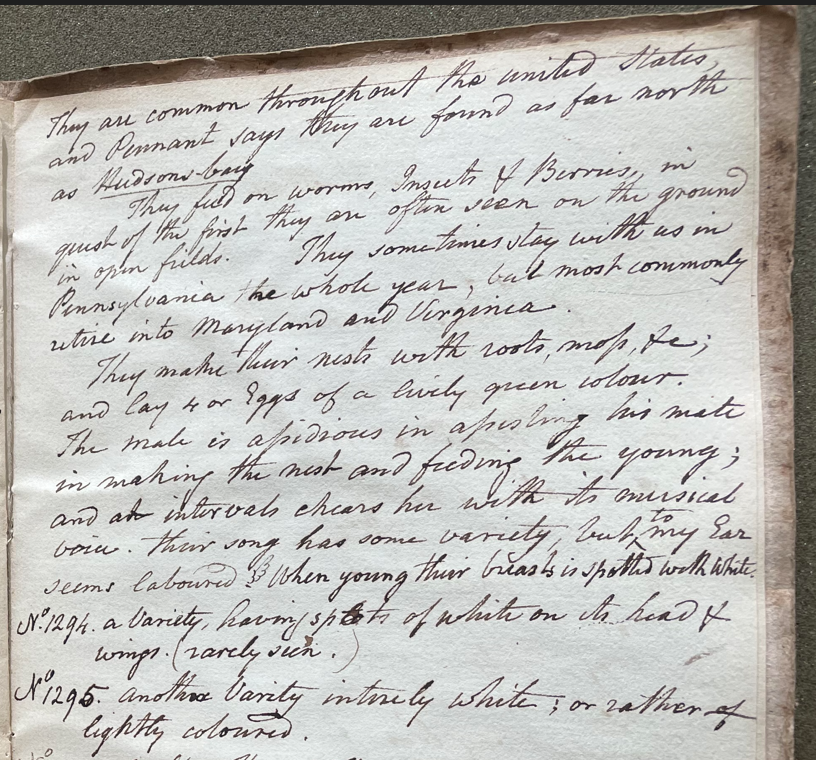 They are common throughout the united States,
and Pennant says they are found as far north
as Hudsons-bay
They feed on worms, Insects & Berries, in
quest of the first they are often seen on the ground
in open fields. They sometimes stay with us in
Pennsylvania the whole year, but most commonly
retire into Maryland and Virginia.
They make their nests with roots, moſs, &c;
and lay 4 or Eggs of a lively green colour.
The male is aſsidious in aſsisting his mate
in making the nest and feeding the young;
and at intervals chears her with its musical
voice. their song has some variety, but to my Ear
seems laboured When young their breasts is spotted with White.
No. 1294. a Variety, having spots of white on its head &
wings. (rarely seen.)
No. 1295. another Varity intirely white; or rather of
lightly coloured.